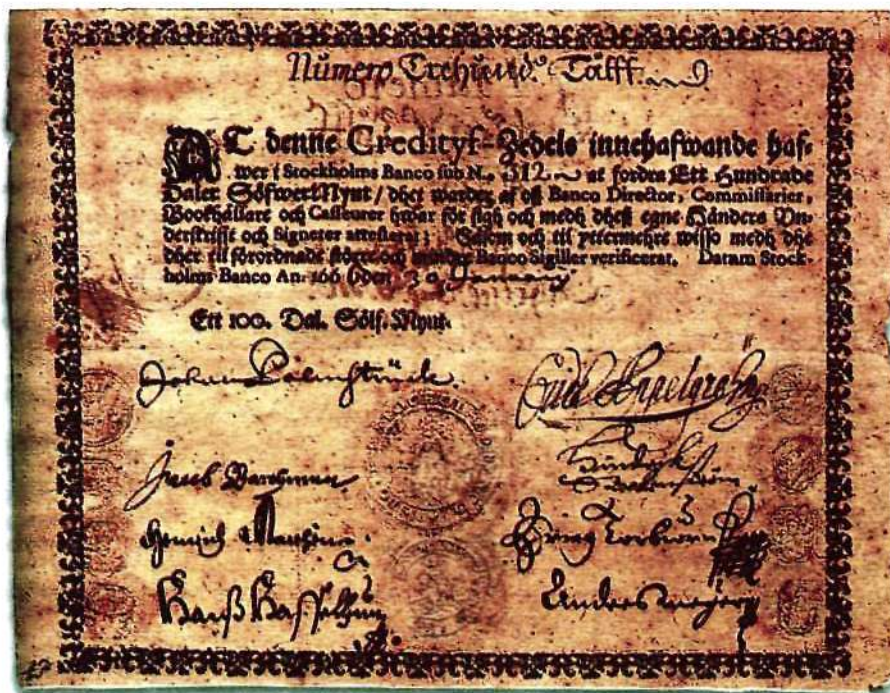 Numero. Trehund.º Tålff.
AT denne Credityf-Zedels innehafwande haf-
wer i Stockholms Banco sub N.o 312. at fordra Ett Hundrade
Daler Sölfwer Mynt / dhet warder af oß Banco Director, Commissarier,
Bookhållare och Casseurer hwar för sigh och medh dheß egne Händers Vn-
derskrifft och Signeter attesterat; Såsom och til yttermehre wisso medh dhe
dher til förordnade större och mindre Banco Sigiller verificerat. Datum Stock-
holms Banco An. 166 den 30 January
Ett 100. Dal. Sölf. Mynt.
Johan Palmstruch
Jacob
Hindrich
Hanß
Anders